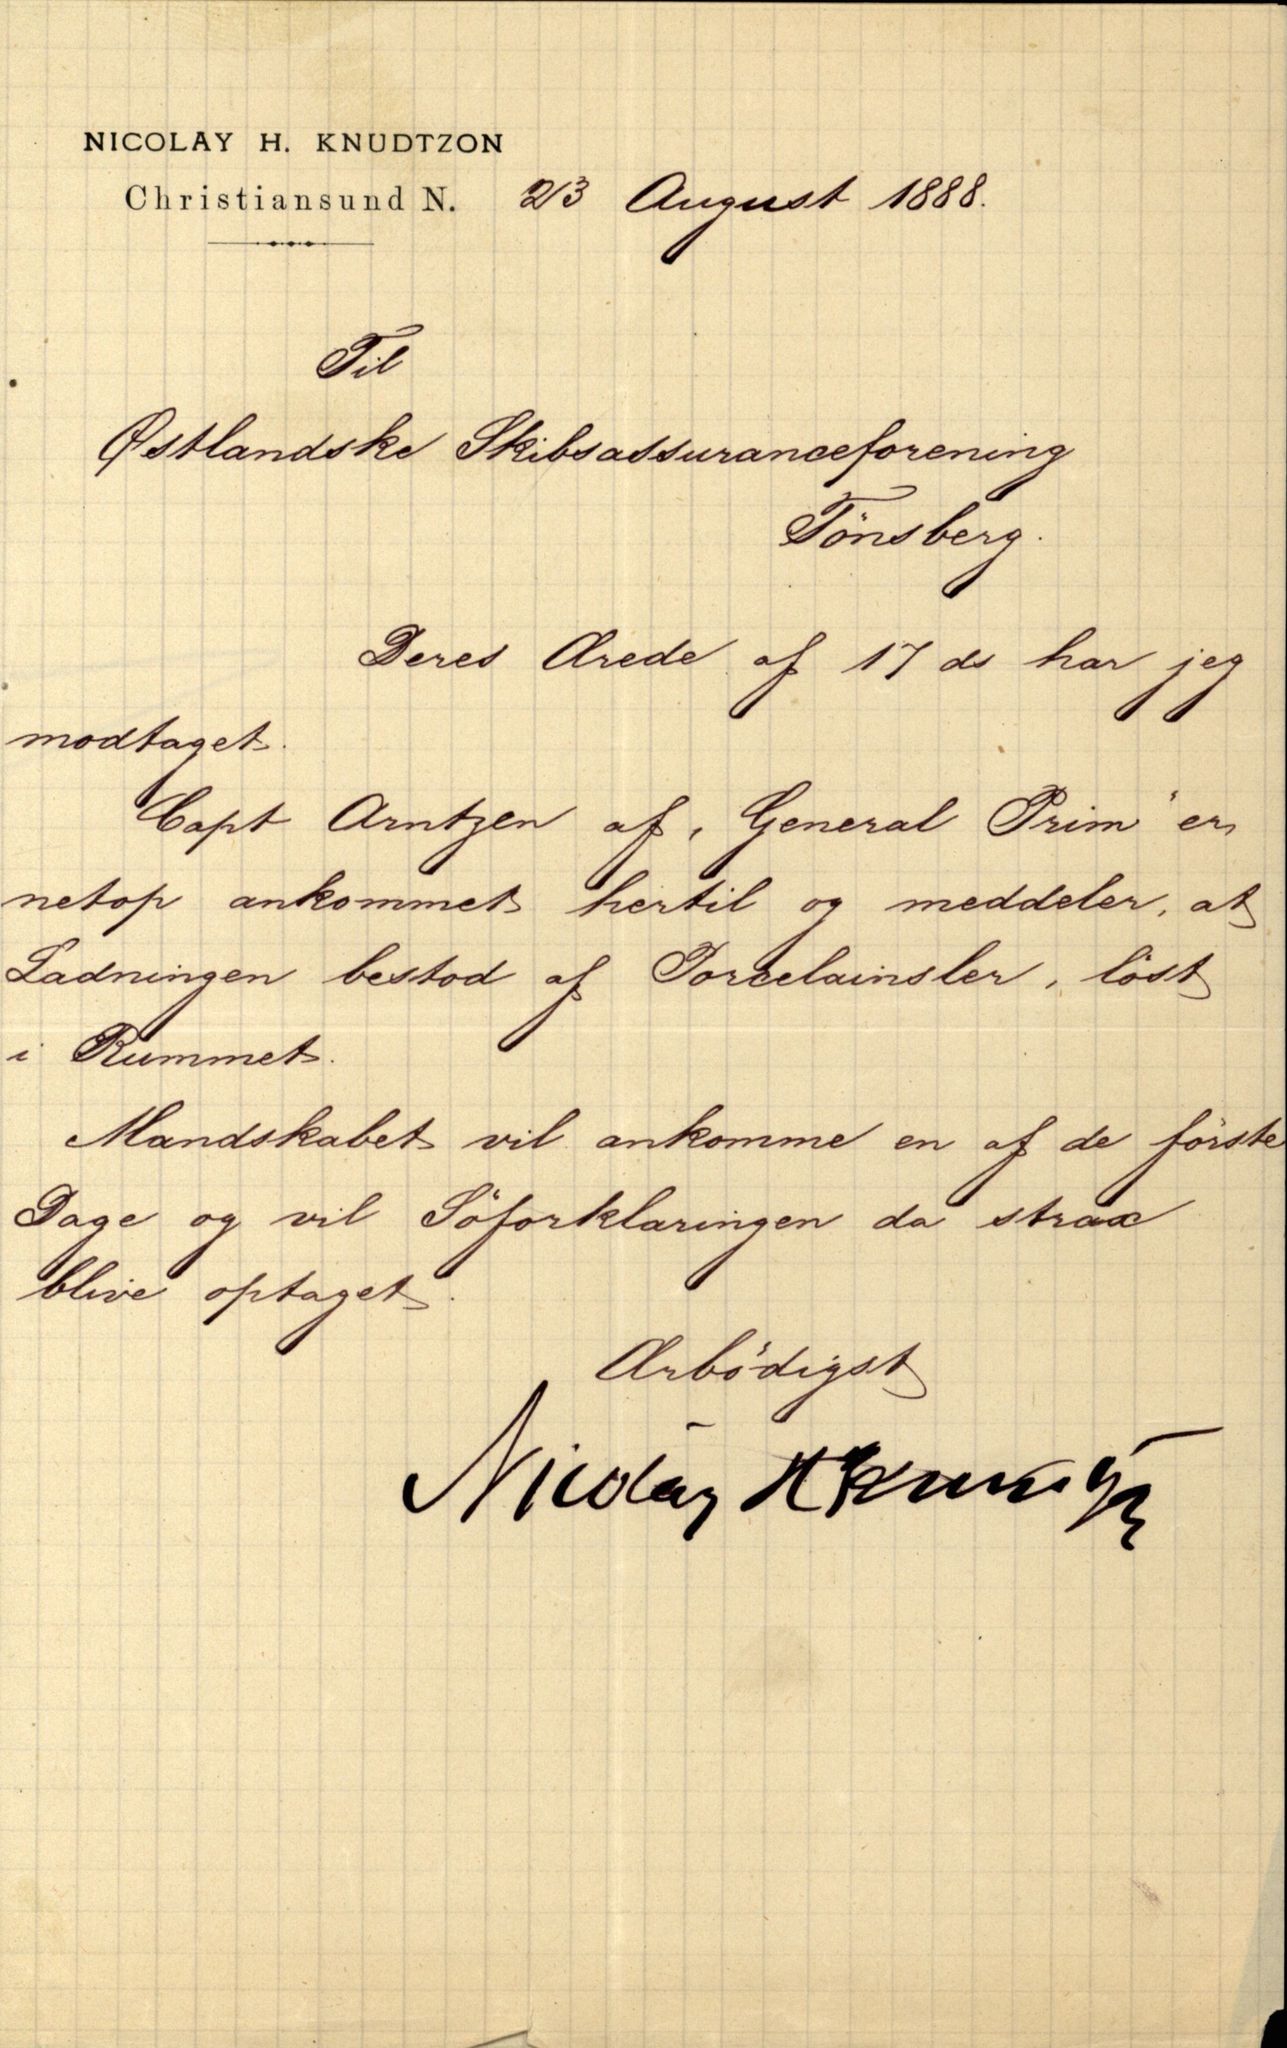 NICOLAY H. KNUDTZON
Christiansund N. 23 August 1888.
Til
Østlandske Skibsassuranceforening
Tönsberg.
Deres Ærede af 17 ds har jeg
modtaget.
Capt Arntzen af „General Prim" er
netop ankommet hertil og meddeler, at
Ladningen bestod af Porcelainsler, löst
i Rummet.
Mandskabet vil ankomme en af de förste
Dage og vil Söforklaringen da strax
blive optaget.
Ærbödigst
Nicolay H Knudtzon